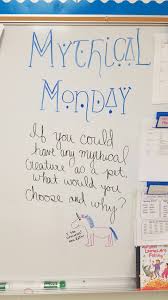 MYTHICAL
MONDAY
If you could
have any mythical
creature as a pet,
what would you
choose and why?